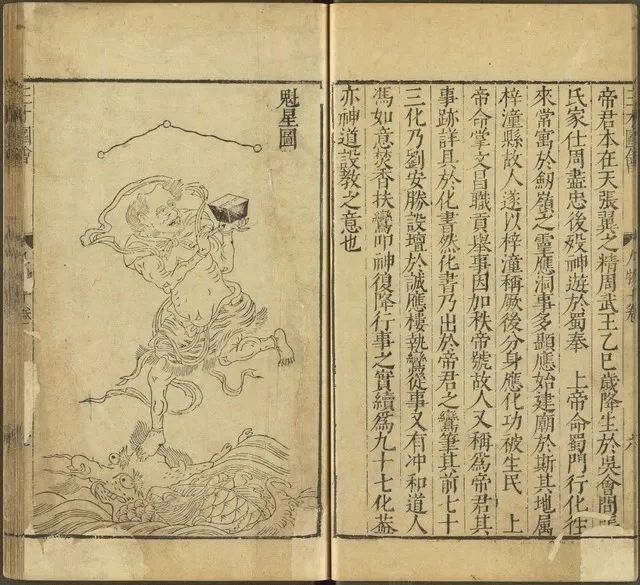 三才圖會
帝君本在天張翼之精周武王乙巳歲降生於吳會間張
氏家仕周盡忠後歿神遊於蜀奉 上帝命蜀門行化往
來常寓於劒嶺之靈應洞事多顯應始建廟於斯其地屬
梓潼縣故人遂以梓潼稱厥後分身應化功被生民 上
帝命掌文昌職貢舉事因加秩帝號故人又稱爲帝君其
事跡詳具於化書然化書乃出於帝君之鸞筆其前七十
三化乃劉安勝設壇於誠應樓執鸞從事又有冲和道人
馮如意焚香扶鸞叩神復降行事之實續爲九十七化葢
亦神道設教之意也
魁星圖
三才圖會